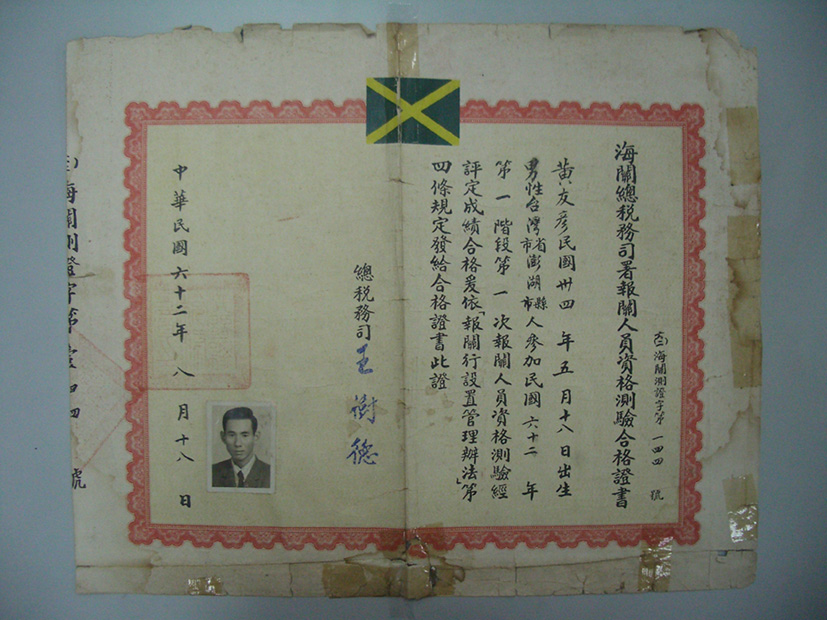 海關總稅務司署報關人員資格測驗合格證書
(六二)海關測證字第一四四號
黃友彥民國卅四年五月十八日出生
男性台灣省市澎湖縣市人參加民國六十二年
第一階段第一次報關人員資格測驗經
評定成績合格爰依「報關行設置管理辦法」第
四條規定發給合格證書此證
總稅務司王樹德
中華民國六十二年八月十八日
海關測證字第壹四四號